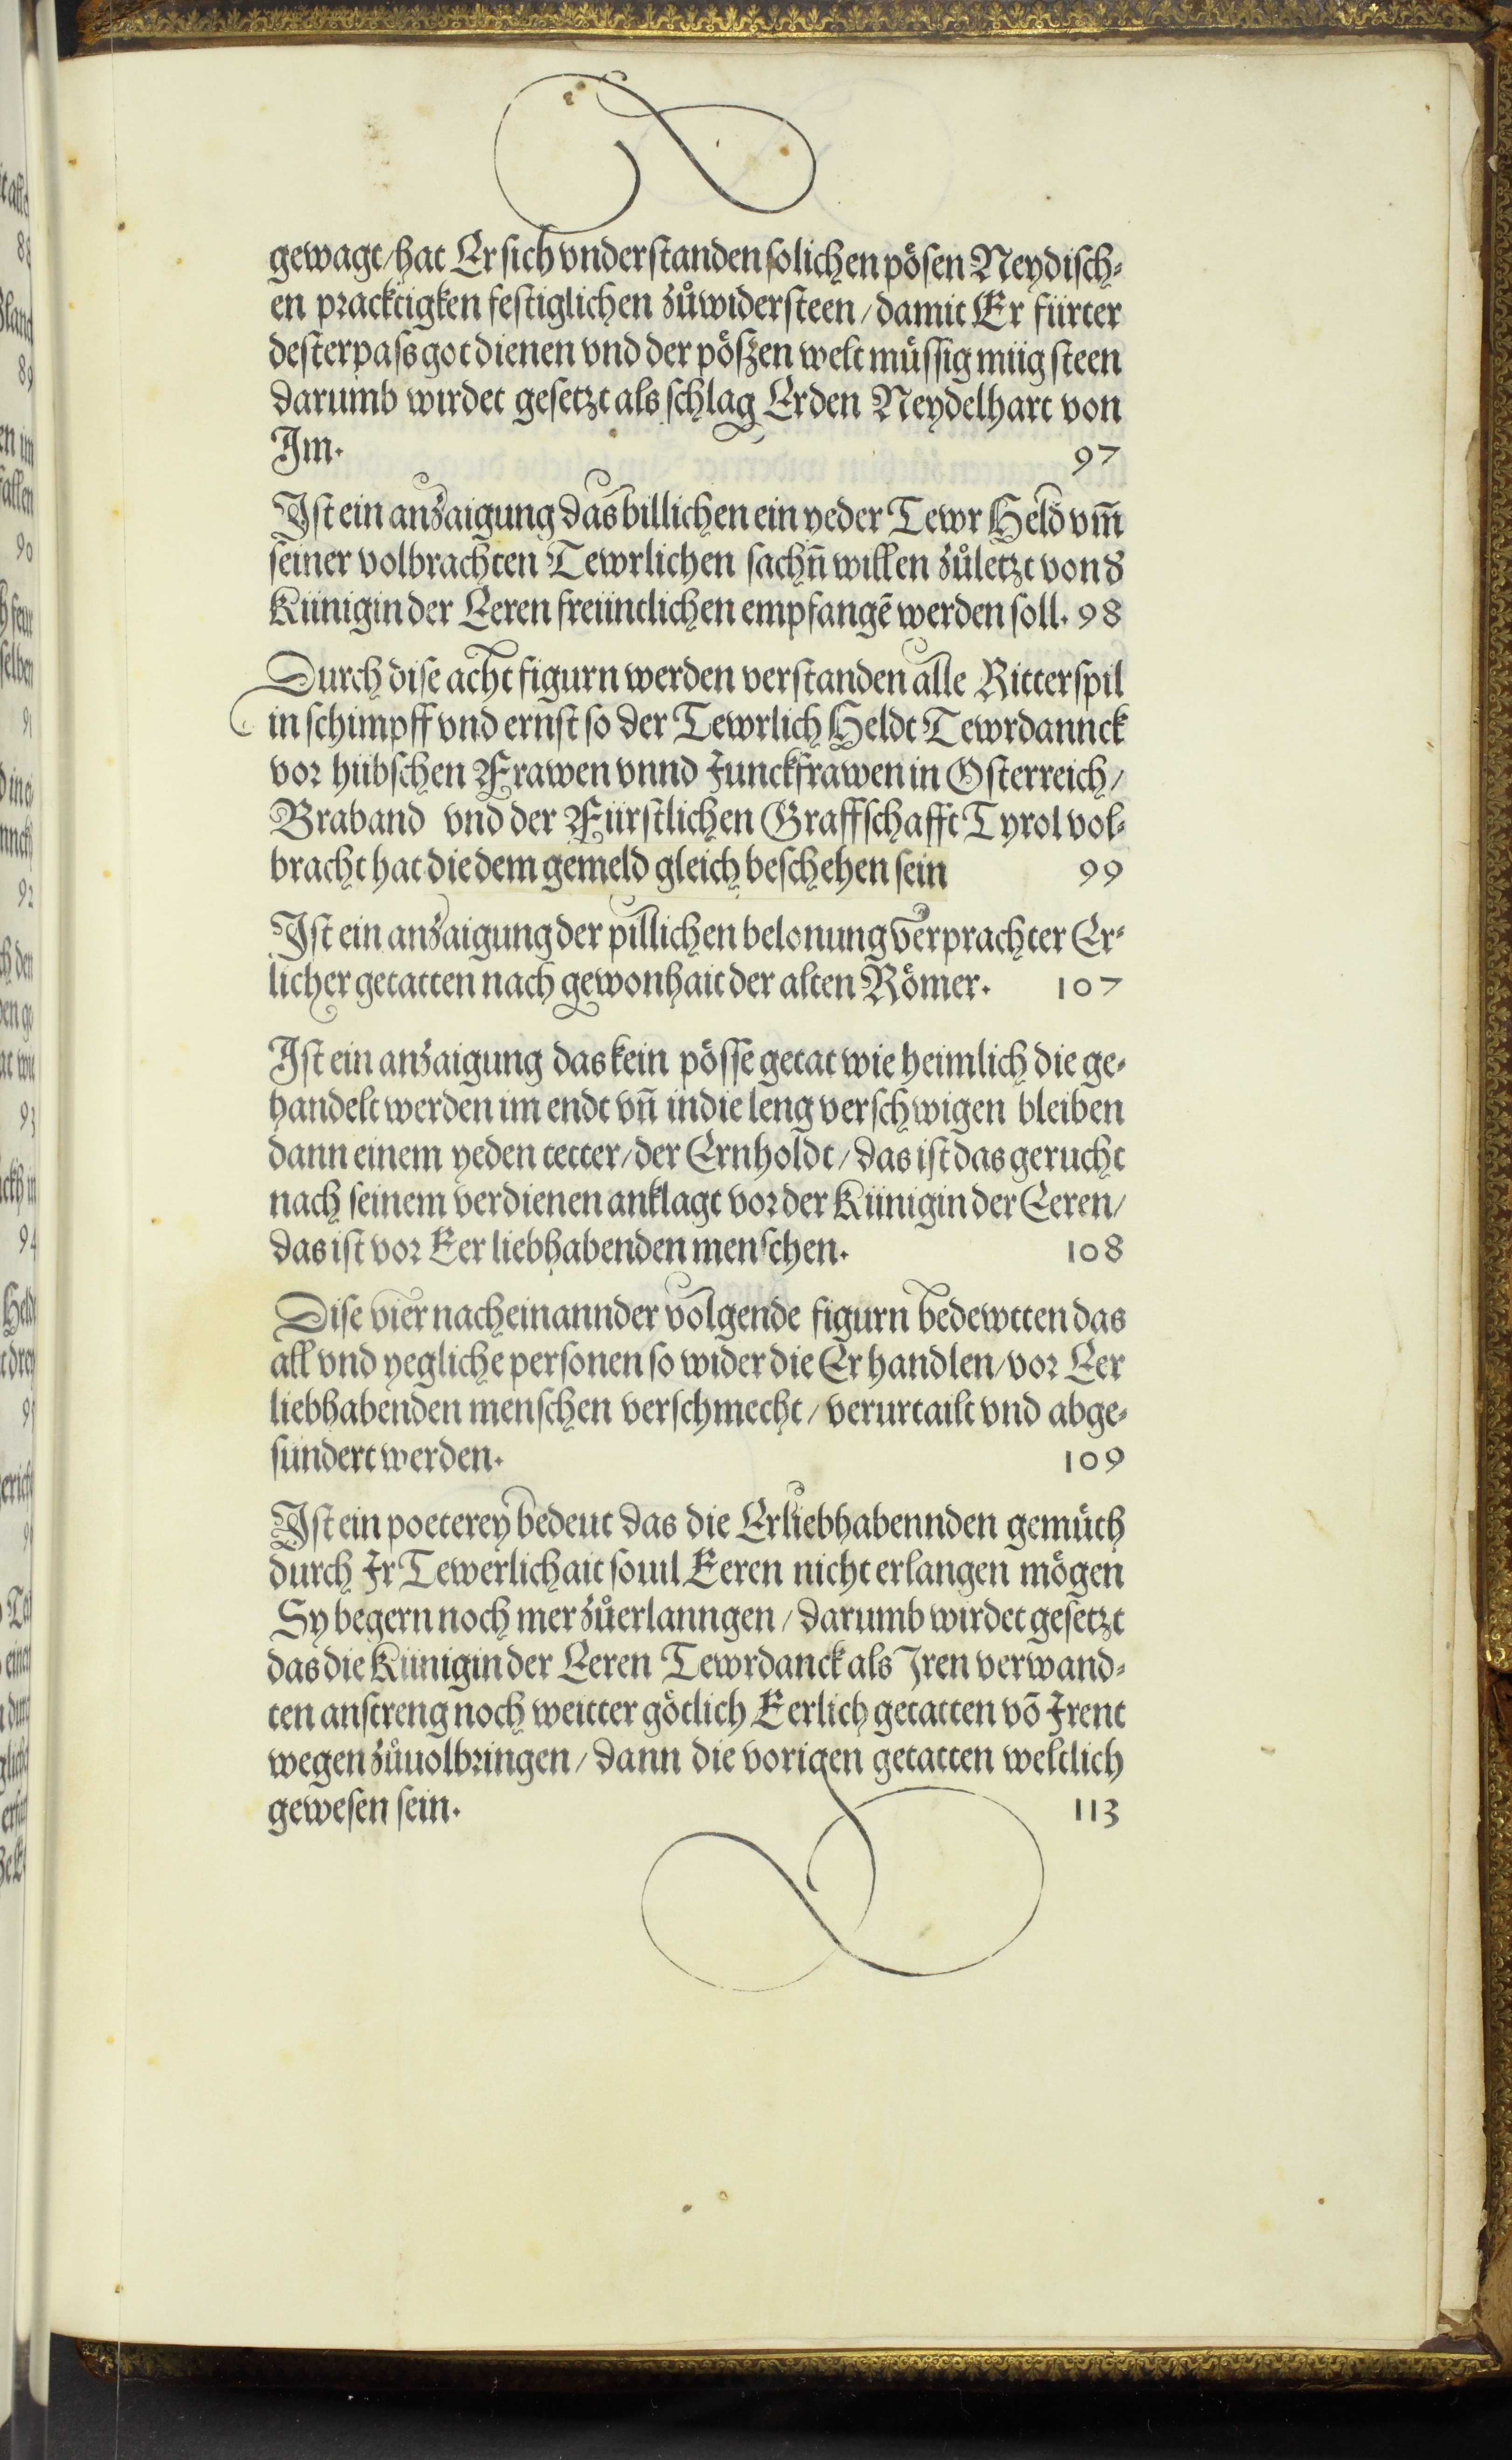 gewagt/hat Er sich vnderstanden solichen pösen Neydisch⸗
en pracktigken festiglichen zůwidersteen/damit Er fürter
desterpass got dienen vnd der pöszen welt müssig müg steen
darumb wirdet gesetzt als schlag Er den Neydelhart von
Im. 97
Ist ein anzaigung das billichen ein yeder Tewr Held vm̃
seiner volbrachten Tewrlichen sachñ willen zůletzt von d
Künigin der Eeren freüntlichen empfangẽ werden soll. 98
Durch dise acht figurn werden verstanden alle Ritterspil
in schimpff vnd ernst so der Tewrlich Heldt Tewrdannck
vor hübschen Frawen vnnd Junckfrawen in Osterreich/
Braband vnd der Fürstlichen Graffschafft Tyrol vol⸗
bracht hat die dem gemeld gleich beschehen sein 99
Ist ein anzaigung der pillichen belonung verprachter Er⸗
licher getatten nach gewonhait der alten Römer. 107
Ist ein anzaigung das kein pösse getat wie heimlich die ge⸗
handelt werden im endt vñ in die leng verschwigen bleiben
dann einem yeden tetter/der Ernholdt/das ist das gerucht
nach seinem verdienen anklagt vor der Künigin der Eeren/
das ist vor Eer liebhabenden menschen. 108
Dise vier nacheinannder volgende figurn bedewtten das
all vnd yegliche personen so wider die Er handlen/vor Eer
liebhabenden menschen verschmecht/verurtailt vnd abge⸗
sündert werden. 109
Ist ein poeterey bedeut das die Erliebhabennden gemüth
durch Ir Tewerlichait souil Eeren nicht erlangen mögen
Sy begern noch mer zůerlanngen/darumb wirdet gesetzt
das die Künigin der Eeren Tewrdanck als Jren verwand⸗
ten anstreng noch weitter götlich Eerlich getatten võ Irent
wegen zůuolbringen/dann die vorigen getatten weltlich
gewesen sein. 113